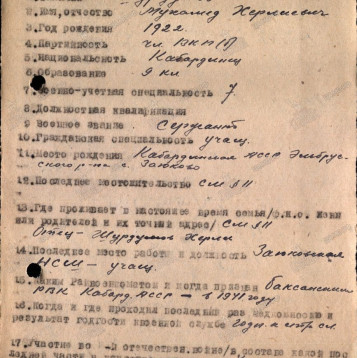 2.Имя,отчество Мухамед Херлиевич
3.Год рождения 1922.
4.Партийность чл. ВКП(б)
5.Национальность Кабардинец
6.Образование 9 кл
7.Военно-учетная специальность 7.
8.Должностная квалификация
9.Военное звание. Сержант
10.Гражданская специальность учащ.
11.Место рождения Кабардинская АССР Эльбрус-
ского р-на с. Заюково
12.Последнее местожительство см § 11
13.Где проживает в настоящее время семья/ф.и.о. жены
или родителей и их точный адрес/ см § 11
Отец-
14.Последнее место работы и должность Заюковская
НСШ - учащ.
15.Каким Райвоенкоматом и когда призван Баксанским
РВК Кабард.АССР - в 1941 году
16.Когда и где проходил последний раз медкомиссию и
результат годности к военной службе Годен к
17.Участие в отечествен.войне/в составе какой пос